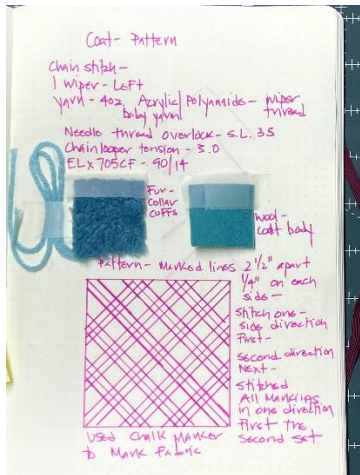 Coat- Pattern
Chain stitch-
1 Wiper- Left
yarn - 4oz Acrylic/Polyamide- wiper
baby yarn thread
Needle thread overlock- S.L. 35
Chainlooper tension - 3.0
ELx 705CF - 90/14
Fur-
collar
cuffs
wool-
coat body
Pattern- Marked lines 2 1/2" apart
1/4" on each
side-
Stitch one-
side direction
First-
second direction
Next-
Stitched
All Markings
in one direction
First the
Second set
Used Chalk Marker
to Mark Fabric